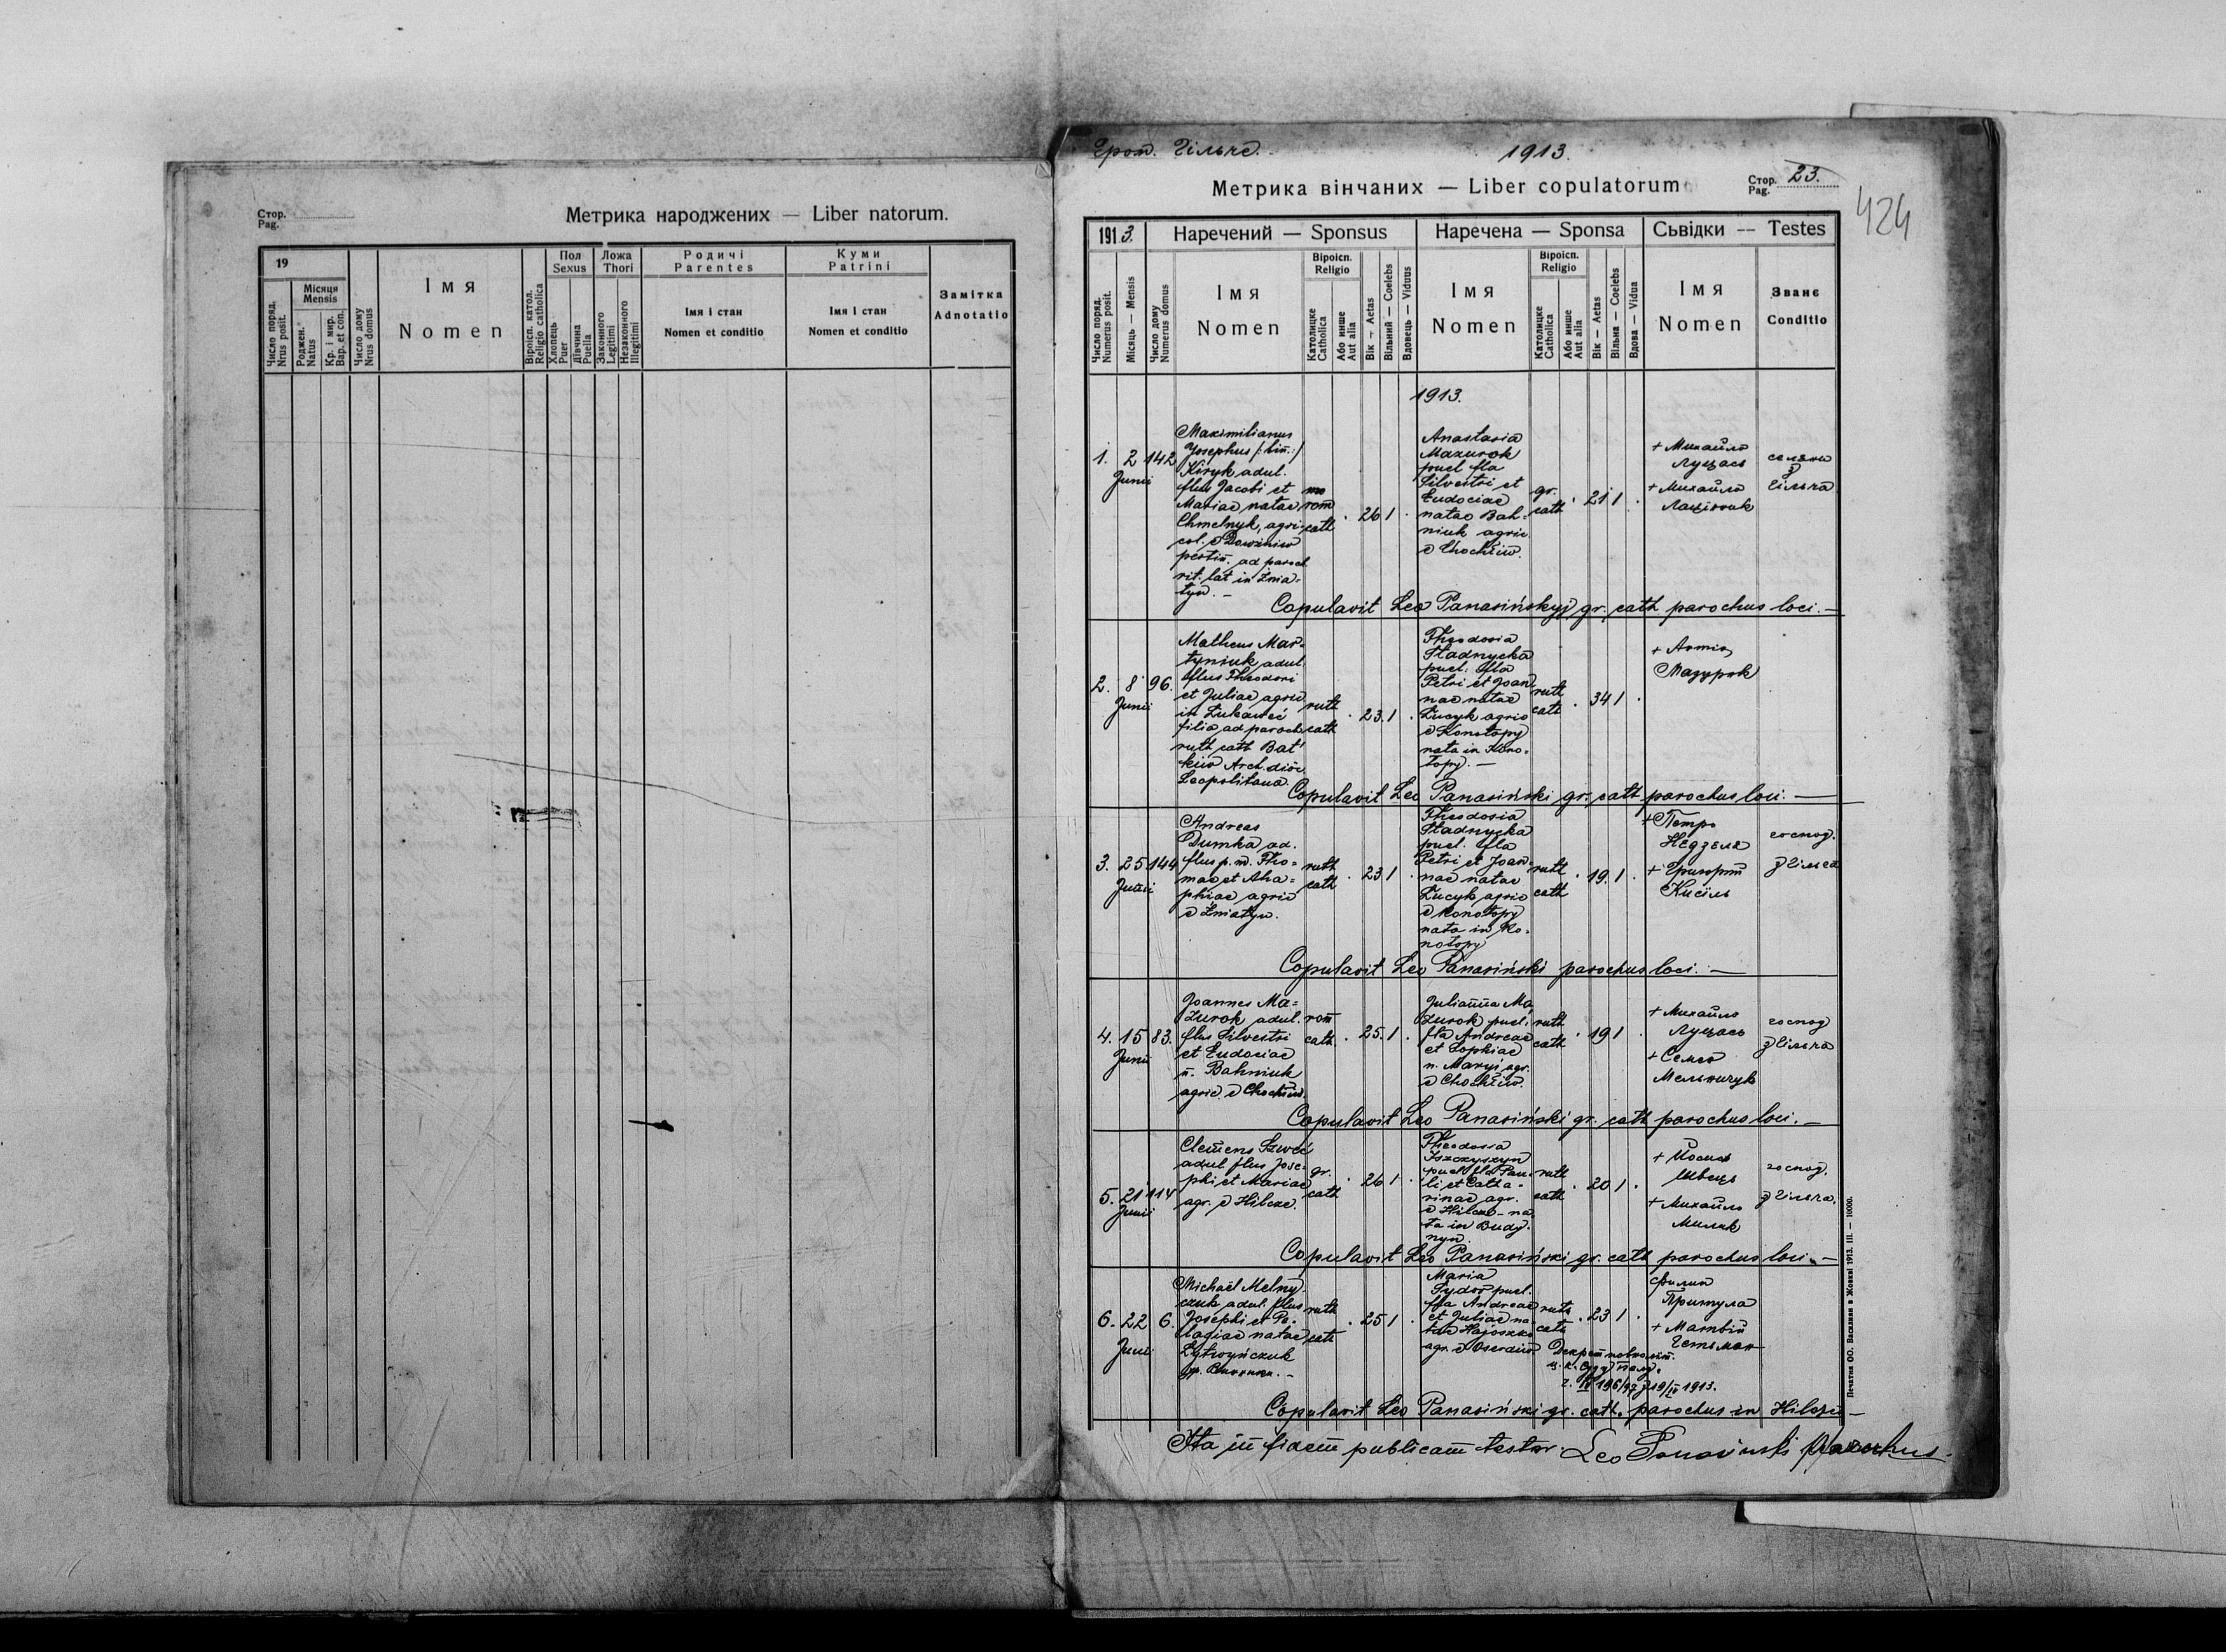 Стор.
Pag.
Метрика народжених — Liber natorum.
19
Число поряд.
Nrus posit.
Місяця
Mensis
Роджен.
Natus
Кр. і мир.
Bap. et con.
Число дому
Nrus domus
Імя
Nomen
Віроісп. катол.
Religio catholica
Пол
Sexus
Хлопець
Puer
Дівчина
Puella
Ложа
Thori
Законного
Legitimi
Незаконного
Illegitimi
Родичі
Parentes
Імя і стан
Nomen et conditio
Куми
Patrini
Імя і стан
Nomen et conditio
Замітка
Adnotatio
Гром. Гільче.
1913.
Метрика вінчаних — Liber copulatorum
Стор.
Pag.
23.
424
1913.
Наречений — Sponsus
Наречена — Sponsa
Сьвідки — Testes
Число поряд.
Numerus posit.
Місяць — Mensis
Число дому
Numerus domus
Імя
Nomen
Віроісп.
Religio
Католицке
Catholica
Або инше
Aut alia
Вік — Aetas
Вільний — Coelebs
Вдовець — Viduus
Імя
Nomen
Віроісп.
Religio
Католицке
Catholica
Або инше
Aut alia
Вік — Aetas
Вільна — Coelebs
Вдова — Vidua
Імя
Nomen
Званє
Conditio
1913.
1. 2 142
Junii
Maximilianus
Josephus /: bin :/
Kiryk adul.
flius Jacobi et
Mariae natae
Chmelnyk, agri-
col. e Dowżniw
pertin. ad paroch
rit. lat in Żnia-
tyn. —
rom
cath
26 1
Anastasia
Mazurok
puel fla
Silvestri et
Eudociae
natae Bah-
niuk agric
e Chochłiw.
gr.
cath
21 1
+ Михайло
Луцась
+ Михайло
селяни
з
Гільча
Copulavit Leo Panasińskyj gr. cath parochus loci. —
2. 8 96.
Junii
Matheus Mar-
tyniuk adul.
flius Theodori
et Juliae agric
in Łukaweć
filia ad paroch
ruth cath Bat'
kiw Arch. dioc.
Leopolitana.
ruth
cath
23. 1
Theodosia
Stadnycka
puel. fla
Petri et Joan
nae natae
Łucyk agric
e Konotopy
nata in Kono-
topy. —
ruth
cath
34 1
+
Мазурок
Copulavit Leo Panasiński gr. cath parochus loci. —
3. 25 144
Junii
Andreas
Dumka ad.
flius p. m. Tho-
mae et Aha-
phiae agric
e Żniatyn.
ruth
cath
23 1
Theodosia
Stadnycka
puel. fla
Petri et Joan-
nae natae
Łucyk agric
e Konotopy
nata in Ko-
notopy
ruth
cath
19. 1
+ Петро
Недзеля
+ Григорій
Кисіль
господ.
з Гільча
Copulavit Leo Panasiński parochus loci. —
4. 15 83.
Junii
Joannes Ma-
zurok adul.
flius Silvestri
et Eudociae
n. Bahniuk
agric. e Chochłiw.
rom
cath
25. 1
Julianna Ma
zurok puel.
fla Andreae
et Sophiae
n. Maryj agr.
e Chochłiw.
ruth
cath
19 1
+ Михайло
Луцась
+ Семен
Мельничук
господ
з Гільча
Copulavit Leo Panasiński gr. cath parochus loci. —
5. 21 114
Junii
Clemens Szweć
adul flius Jose-
phi et Mariae
agr. e Hilcze.
gr.
cath
26 1
Theodosia
Iszczyszyn
puel fla Pau-
li et Catha-
rinae agr.
e Hilcze - na
ta in Budy-
nyn.
ruth
cath
20 1
+ Йосиф
Швець
+ Михайло
господ.
з Гільча.
Copulavit Leo Panasiński gr. cath parochus loci. —
6. 22 6.
Junii
Michaël Melny-
czuk adul. flius
Josephi et Pe-
lagiae natae
ruth
cath
25 1
Maria
Sydor puel.
fla Andreae
et Juliae na-
tae Hajoszko
agr. e Oserdiw
ruth
cath
23 1
Филип
Притула
+ Матвій
Гетьман
Декрет повноліт.
19/IV 1913.
Copulavit Leo Panasiński gr. cath. parochus in Hilcze —
Ita in fidem publicam testor. Leo Panasinski parochus.
Печатня ОО. Василиян в Жовкві 1913. III. — 10000.